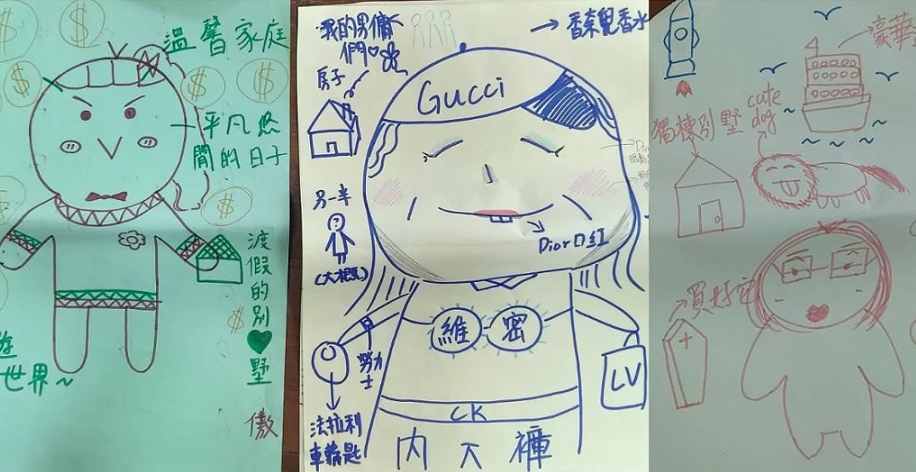 溫馨家庭
平凡悠
閒的日子
渡假的別♥墅
遊
世界~
傲
$
$
$
$
$
$
$
我的男傭
們♡
房子
香奈兒香水
Gucci
另一半
Dior口紅
維 密
勞力士
法拉利
車鑰匙
LV
CK
內下褲
豪華
獨棟別墅
cute
dog